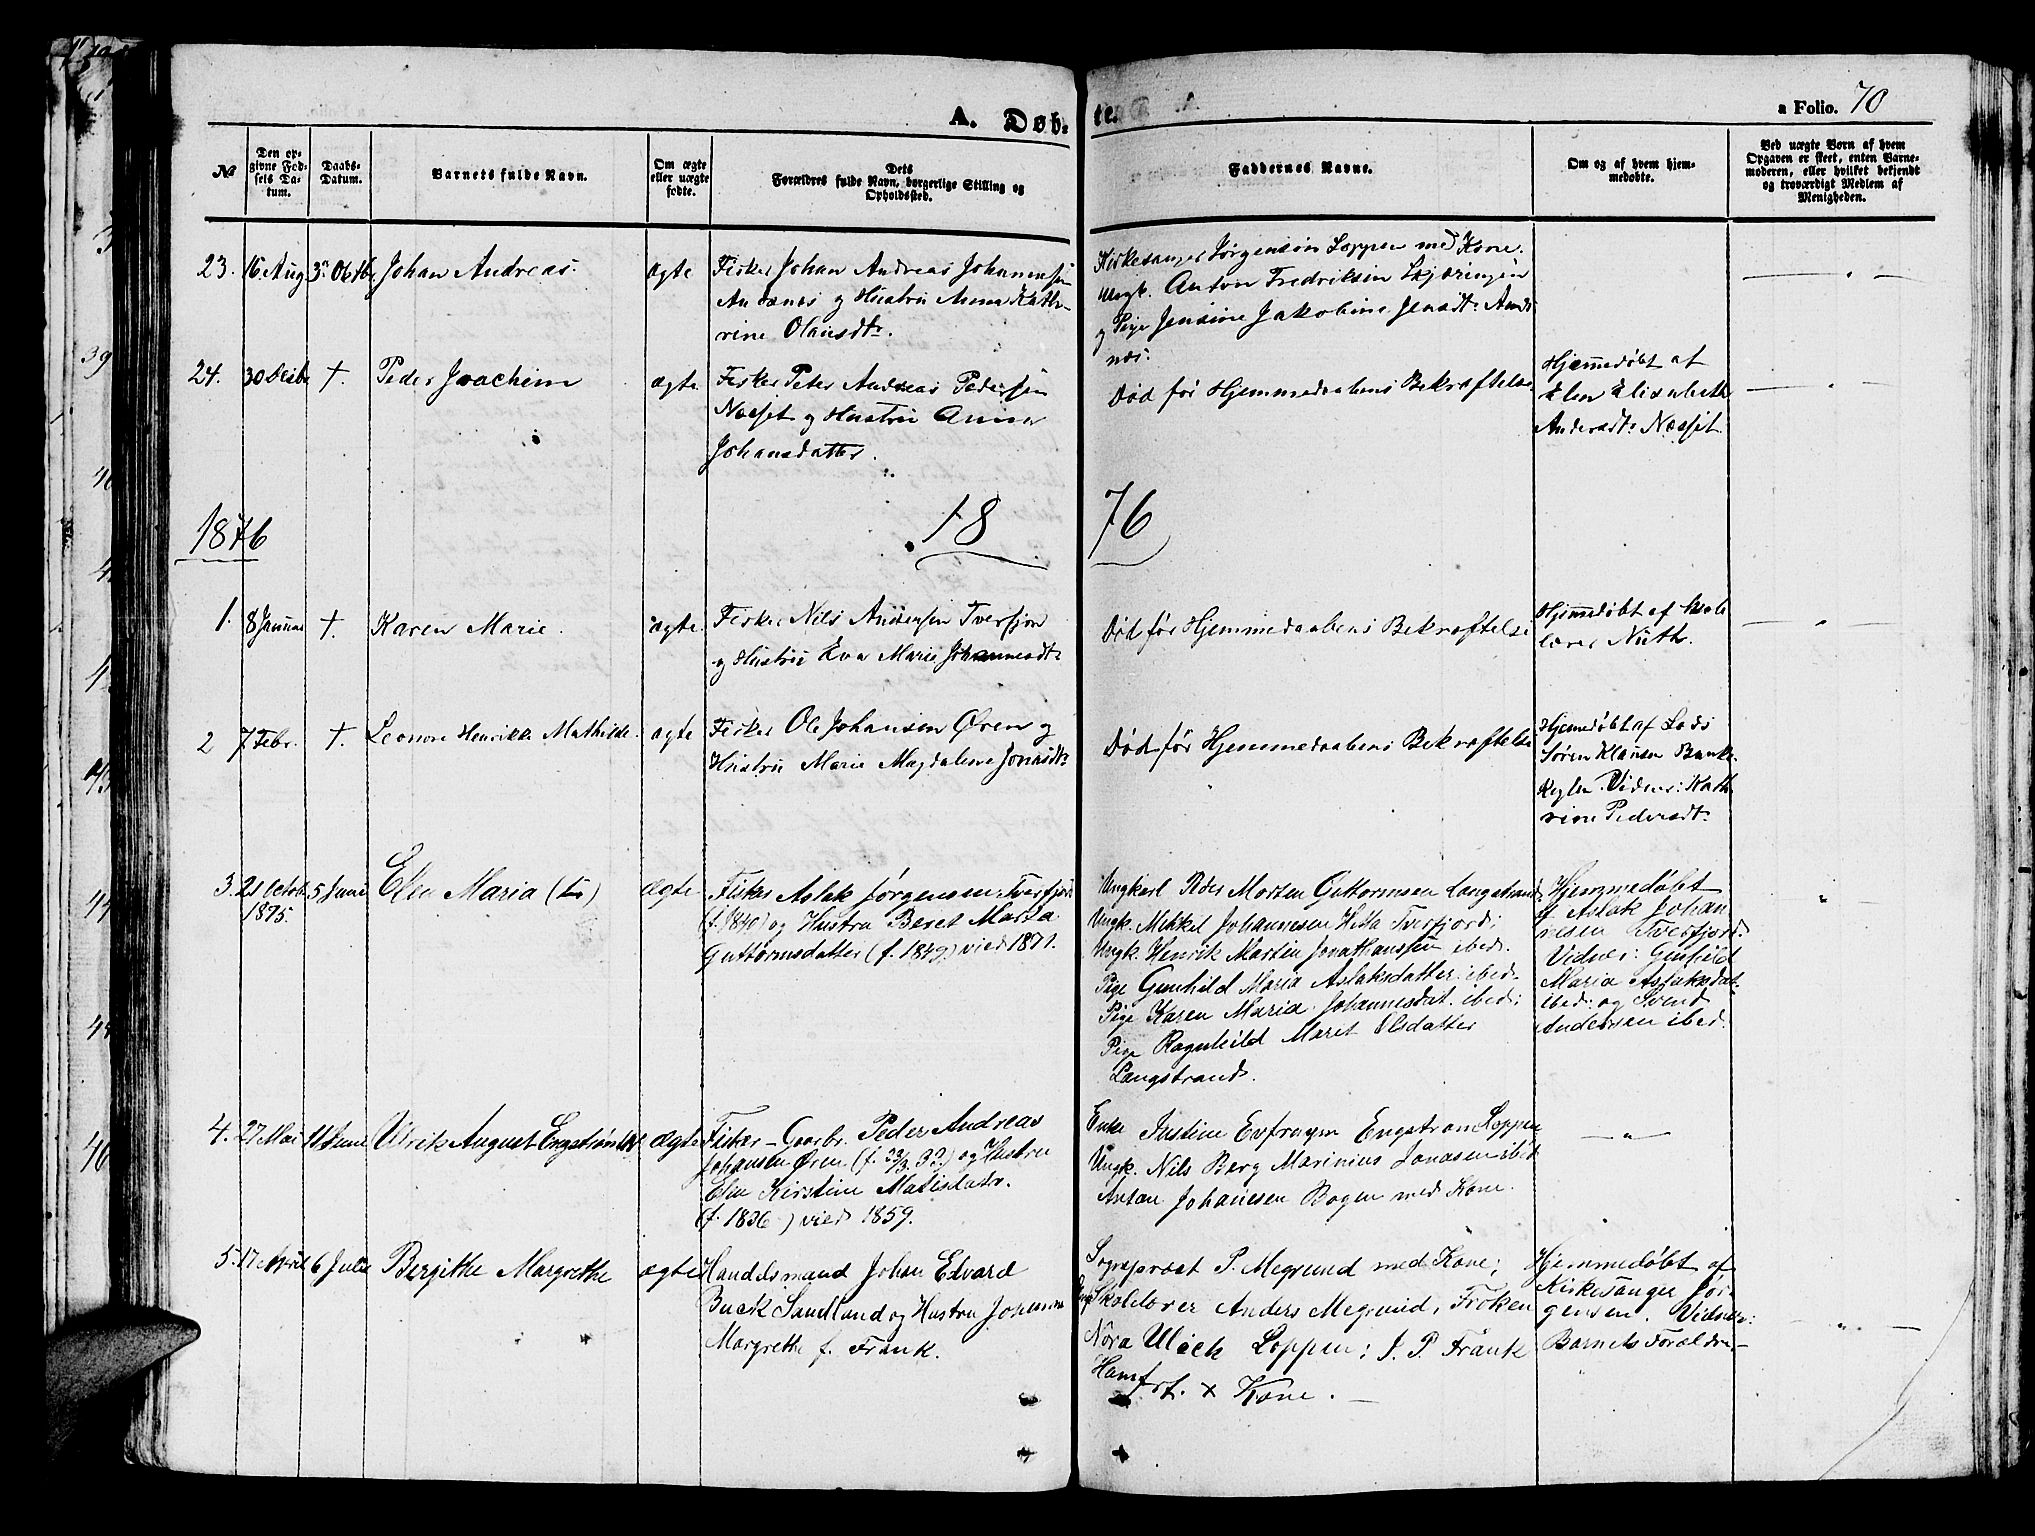 A. Døb-
te.
a Folio. 70
№
Den op-
givne Fød-
sels Da-
tum.
Daabs-
Datum.
Barnets fulde Navn.
Om ægte
eller uægte
fødte.
Dets
Forældres fulde Navn, borgerlige Stilling og
Opholdssted.
Faddernes Navne.
Om og af hvem hjem-
medøbte.
Ved uægte Børn af hvem
Opgaven er skeet, enten Barne-
moderen, eller hvilket bekjendt
og troværdigt Medlem af
Menigheden.
23. 16 Aug 3 Octbr Johan Andreas. ægte
Fisker Johan Andreas Johannessen
Andsnes og Hustru Anna Kath-
rine Olausdtr.
Kirkesanger Jørgensen Loppen med Kone.
Ungk. Anton Fredriksen Skjæringen
og Pige Jensine Jakobine Jensdtr Ands
næs.
24. 30 Decbr †. Peder Joachim ægte
Fisker Peter Andreas Pedersen
Næsset og Hustru Anna
Johansdatter.
Død før Hjemmedaabens Bekræftelse
Hjemmedøbt af
Elen Elisabeth
Andersdtr Næsset.
1876
18 76
1. 8 Januar †. Karen Marie. ægte
Fisker Nils Andersen Tverfjor
og Hustru Eva Marie Johannesdtr
Død før Hjemmedaabens Bekræftelse
Hjemmedøbt af Skole
lærer Nuth.
2 7 Febr. †. Leonore Henrikke Mathilde. ægte
Fisker Ole Johansen Øren og
Hustru Marie Magdalene Jonasdtr
Død før Hjemmedaabens Bekræftelse
Hjemmedøbt af Lods
Søren Klausen Banke
Keglen. Vidner: Kath
rine Pedersdtr
3. 21 Octob. 5 Juni Elen Maria ægte
1875.
Fisker Aslak Jørgensen Tverfjord
(f. 1840) og Hustru Beret Marta
Guttormsdatter (f. 1849) viet 1871.
Ungkarl Peder Morten Guttormsen Langstrand
Ungk. Mikkel Johannesen Hetta Tverfjord;
Ungk. Henrik Martin Jonathansen ibed.
Pige Gunhild Maria Aslaksdatter ibed.
Pige Karen Maria Johannesdat. ibed;
Pige Ragnhild Maret Olsdatter
Langstrand.
Hjemmedøbt
af Aslak Johan
nesen Tverfjord.
Vidner: Gunhild
Maria Aslaksdat.
ibed. og Svend
Andersen ibed.
4. 27 Mai 11 Juni Ulrik August Engstrøm ægte
Fisker-Gaarbr. Peder Andreas
Johansen Øren og Hustru
Elen Kirstine Matisdatr.
(f. 1836) vied 1859.
Enke Justine Eufrosyne Engstrøm Loppen
Ungk. Nils Berg Marinius Jonasen ibed
Anton Johannesen Bogen med Kone.
5. 17 April 6 Juli Bergitte Margrethe ægte
Handelsmand Johan Edvard
Buck Sandland og Hustru Johanna
Margrethe f. Frank.
Sogneprest P. Megrund med Kone;
Skolelærer Anders Megrund, Frøken
Nora Ulich Loppen; J. P. Frank
Hamfst. & Kone.
Hjemmedøbt af
Kirkesanger Jør-
gensen. Vidner:
Barnets Forældre